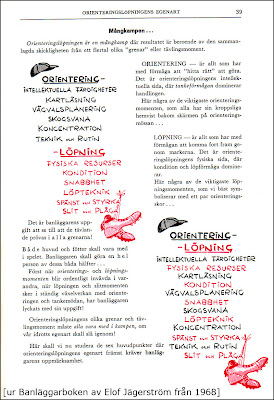 ORIENTERINGSLÖPNINGENS EGENART 39
Mångkampen...
Orienteringslöpningen är en mångkamp där resultatet är beroende av den samman-
lagda skickligheten från ett flertal olika "grenar" eller tävlingsmoment.
ORIENTERING-
INTELLEKTUELLA FÄRDIGHETER
KARTLÄSNING
VÄGVALSPLANERING
SKOGSVANA
KONCENTRATION
TEKNIK OCH RUTIN
-LÖPNING
FYSISKA RESURSER
KONDITION
SNABBHET
LÖPTEKNIK
SPÄNST OCH STYRKA
SLIT OCH PLÅGA
ORIENTERING — är allt som har
med förmåga att "hitta rätt" att göra.
Det är orienteringslöpningens intellek-
tuella sida, där tankeförmågan dominerar
handlingen.
Här några av de viktigaste orienterings-
momenten, som alla har sin kroppsliga
hemvist bakom skärmen på orienterings-
mössan...
LÖPNING — är allt som har med
förmågan att komma fort fram genom
markerna. Det är orienterings-
löpningens fysiska sida, där kondition
och löpförmåga dominerar.
Här några av de viktigaste löp-
ningsmomenten, som vi bäst sym-
boliserar med ett par orienterings-
skor...
Det är banläggarens upp-
gift att se till att de tävlan-
de prövas i alla grenarna!
Både huvud och fötter skall vara med
i spelet. Banläggaren skall göra en hel
person av dessa båda hälfter...
Först när orienterings- och löpnings-
momenten blir ordentligt invävda i var-
andra, när löpningen och slitmomenten
sker i ständig växelverkan med oriente-
ringen och tankemödan, har banläggaren
lyckats med sin uppgift!
Orienteringslöpningens olika grenar och täv-
lingsmoment måste alla vara med i kampen, om
vår idrotts egenart skall slå igenom!
Här skall vi nu studera de sex huvudpunkter där
orienteringslöpningens egenart främst kräver banläg-
garens uppmärksamhet.
ORIENTERING-
-LÖPNING
INTELLEKTUELLA FÄRDIGHETER
FYSISKA RESURSER
KARTLÄSNING
KONDITION
VÄGVALSPLANERING
SNABBHET
SKOGSVANA
LÖPTEKNIK
KONCENTRATION
SPÄNST OCH STYRKA
TEKNIK OCH RUTIN
SLIT OCH PLÅGA
[ur Banläggarboken av Elof Jägerström från 1968]